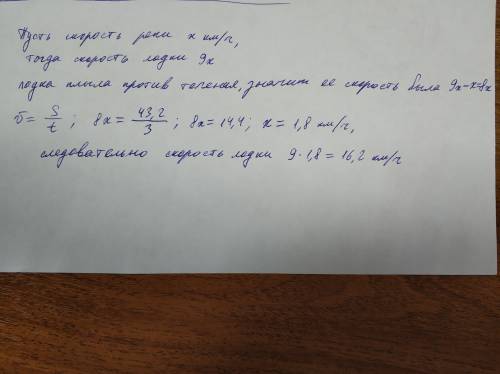 Пусть скорость реки x км/г,
тогда скорость лодки 9x
лодка плыла против течения, значит ее скорость была 9x-x=8x
v = S/t ; 8x = 43,2/3 ; 8x = 14,4 ; x = 1,8 км/г,
следовательно скорость лодки 9·1,8 = 16,2 км/г